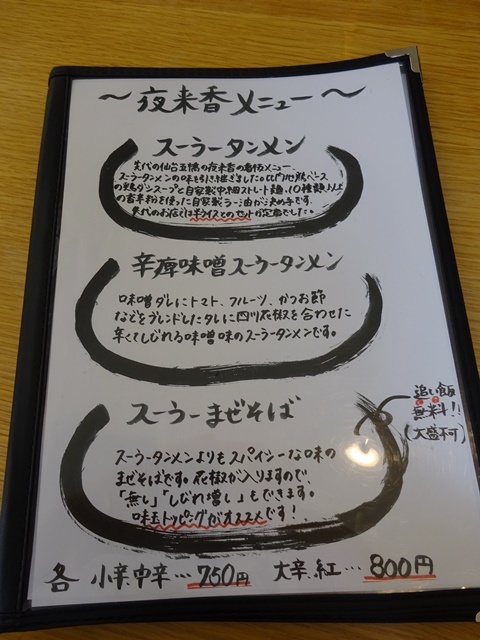 ～夜来香メニュー～
スーラータンメン
先代の仙台五橋の夜来香の看板メニュー
スーラータンメンの味を引き継ぎました。比内地鶏ベース
の鶏ガラスープと自家製中細ストレート麺、10種類以上
の香辛料を使った自家製ラー油が決め手です。
先代のお店では半ライスとのセットが定番でした。
辛痺味噌スーラータンメン
味噌ダレにトマト、フルーツ、かつお節
などをブレンドしたタレに四川花椒を合わせた
辛くてしびれる味噌味のスーラータンメンです。
スーラーまぜそば
スーラータンメンよりもスパイシーな味の
まぜそばです。花椒が入りますので、
「無し」「しびれ増し」もできます。
味玉トッピングがオススメです！
追い飯
無料!!
(大盛不可)
各 小辛、中辛…750円 大辛、紅…800円